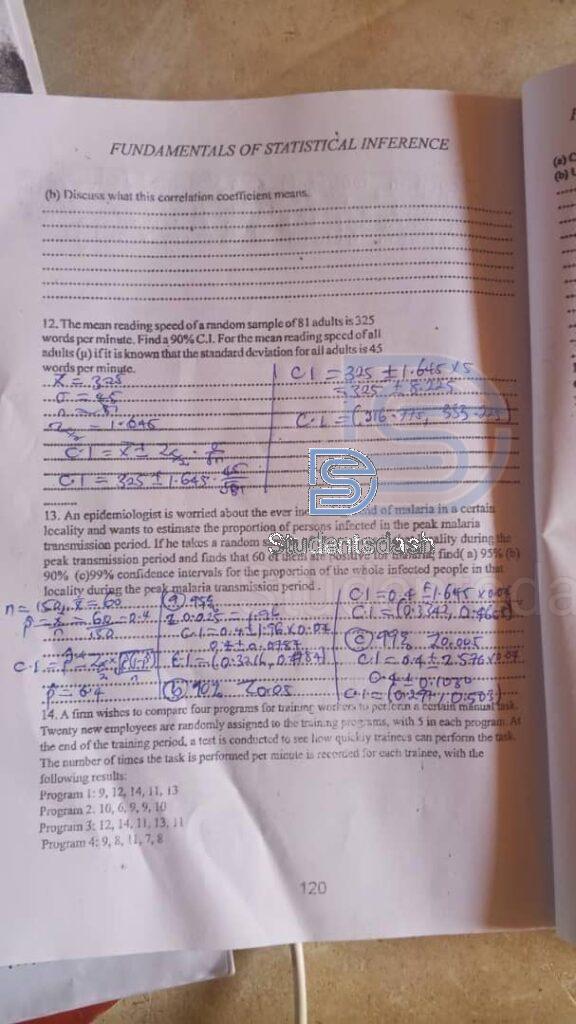 FUNDAMENTALS OF STATISTICAL INFERENCE
(b) Discuss what this correlation coefficient means.
12. The mean reading speed of a random sample of 81 adults is 325
words per minute. Find a 90% C.I. For the mean reading speed of all
adults (μ) if it is known that the standard deviation for all adults is 45
words per minute.
x̄ = 325
σ = 45
n = 81
= 1.645
C.I = x̄ ± Zα/2 · σ/√n
C.I = 325 ± 1.645 · 45/√81
C.I = 325 ± 1.645 × 5
= 325 ± 8.225
C.I = (316.775, 333.225)
13. An epidemiologist is worried about the ever of malaria in a certain
locality and wants to estimate the proportion of persons infected in the peak malaria
transmission period. If he takes a random locality during the
peak transmission period and finds that 60 of them are positive for malaria, find( a) 95% (b)
90% (c)99% confidence intervals for the proportion of the whole infected people in that
locality during the peak malaria transmission period .
n = 150, x = 60
p = x/n = 60/150 = 0.4
p = 0.4
(a) 95%
Z 0.025 = 1.96
C.I = 0.4 ± 1.96 × 0.04
0.4 ± 0.0784
C.I = (0.3216, 0.4784)
(b) 90% Z0.05
C.I = 0.4 ± 1.645 × 0.04
C.I = (0.342, 0.4660)
(c) 99% Z0.005
C.I = 0.4 ± 2.576 × 0.04
0.4 ± 0.1030
C.I = (0.297, 0.503)
14. A firm wishes to compare four programs for training workers to perform a certain manual task.
Twenty new employees are randomly assigned to the training programs, with 5 in each program. At
the end of the training period, a test is conducted to see how quickly trainees can perform the task.
The number of times the task is performed per minute is recorded for each trainee, with the
following results:
Program 1: 9, 12, 14, 11, 13
Program 2. 10, 6, 9, 9, 10
Program 3: 12, 14, 11, 13, 11
Program 4: 9, 8, 11, 7, 8
120
Studentsdash
(b)